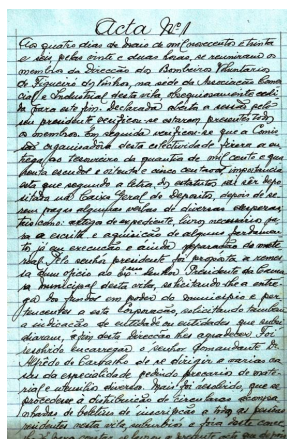 Acta Nº 1
Aos quatro dias de maio de mil novecentos e trinta
e seis, pelas vinte e duas horas, se reuniram os
membros da Direcção dos Bombeiros Voluntarios
de Figueiró dos Vinhos, na sede da Associação Comer
cial e Industrial desta vila, obsequiosamente cedi
da para este fim. Declarada aberta a sessão pelo
seu presidente verificou-se estarem presentes todos
os membros. Em seguida verificou-se que a Comis
são organisadora desta colectividade fizera a en
trega ao tesoureiro da quantia de mil cento e qua
renta escudos e oitenta e cinco centavos, importancia
esta que segundo a letra dos estatutos vai ser depo
sitada na Caixa Geral de Depositos, depois de se
rem pagas algumas verbas de diversas despezas
tais como: artigos de expediente, livros necessarios pa
ra a escrita e aquisição de alguns fardamen
tos já em execução e ainda reparação de mate
rial. Pelo senhor presidente foi proposta a remes
sa dum oficio ao Exmo. Senhor Presidente da Cama
ra municipal desta vila, solicitando-lhe a entre
ga dos fundos em poder do municipio e per
tencentes a esta Corporação, solicitando tambem
a indicação da entidade ou entidades que subsi
diaram, a fim desta Direcção lhes agradecer. Foi
resolvido encarregar o senhor Comandante
Alfredo de Carvalho de se dirigir a varias ca
sas da especialidade pedindo precarios de mate
rial e utensilios diversos. Mais foi resolvido, que se
procedesse á distribuição de circulares acompa
nhadas de boletins de inscripção a todas as pessoas
residentes nesta vila, suburbios e fora deste conce